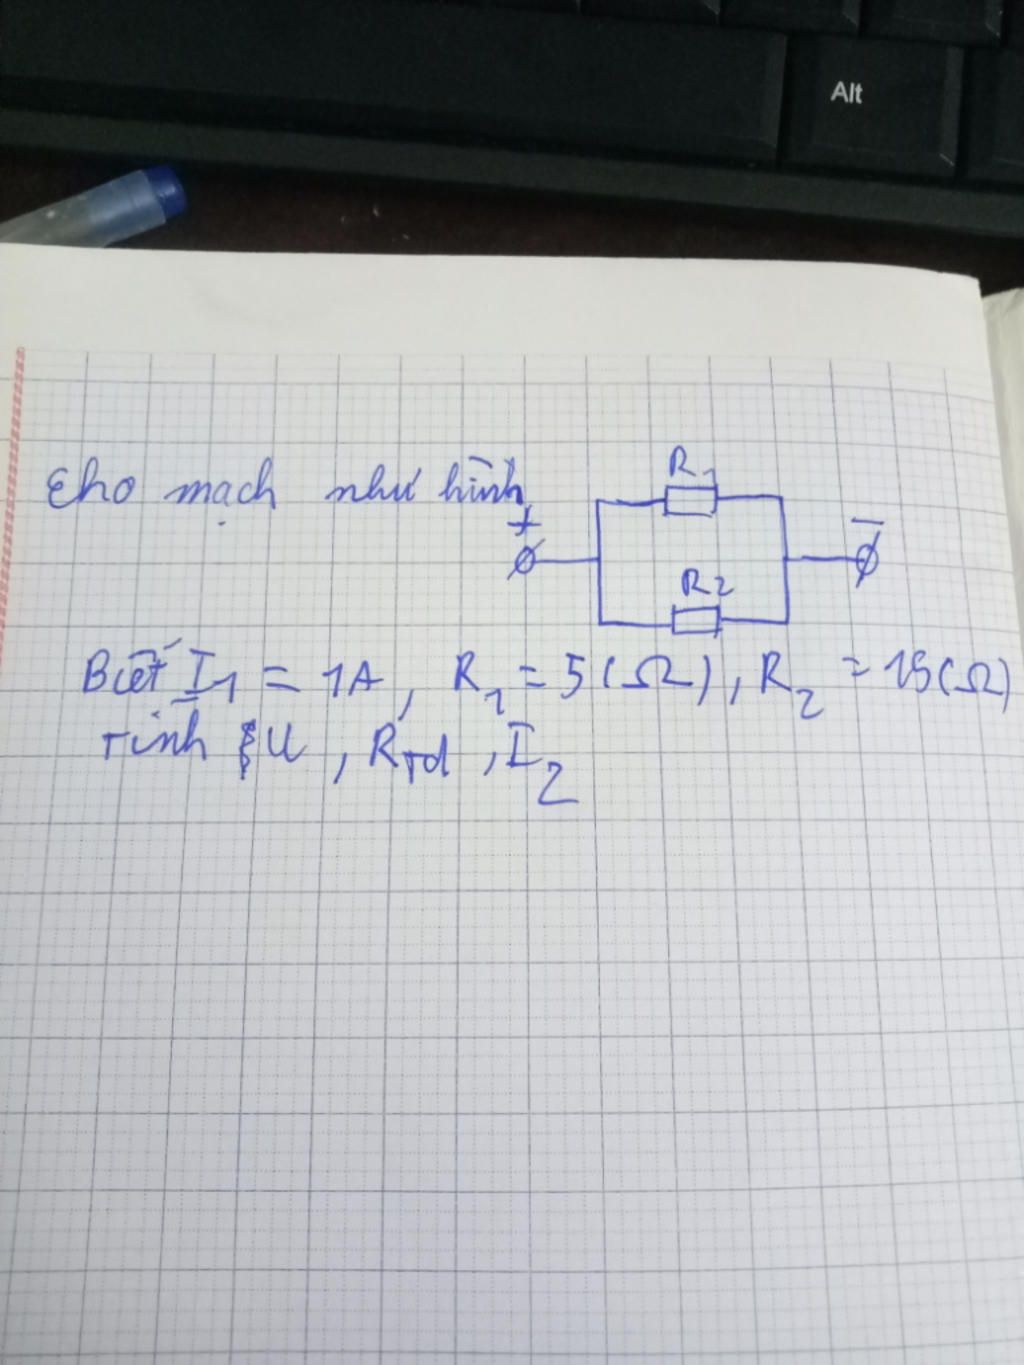 Alt
Cho mạch như hình
R1
+ -
R2
Biết I1 = 1A, R1 = 5(Ω), R2 = 15(Ω)
Tính U, Rtd, I2